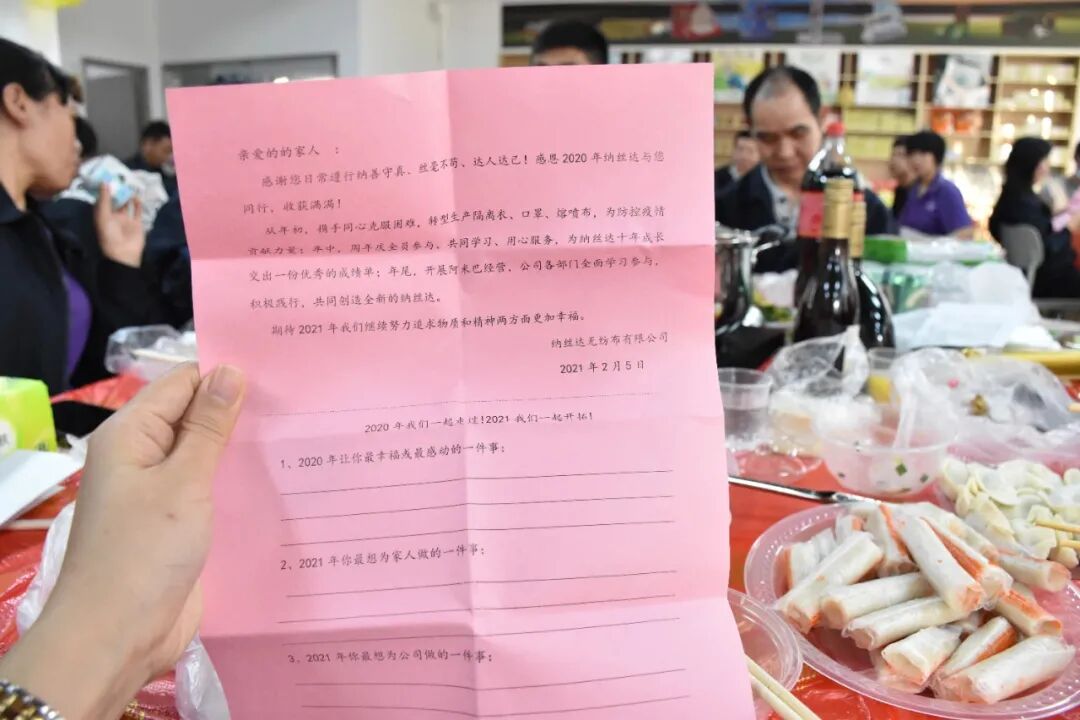 亲爱的的家人 ：
感谢您日常遵行纳善守真、丝毫不苟、达人达己！感恩2020年纳丝达与您
同行，收获满满！
从年初，携手同心克服困难，转型生产隔离衣、口罩、熔喷布，为防控疫情
贡献力量；年中，周年庆全员参与、共同学习、用心服务，为纳丝达十年成长
交出一份优秀的成绩单；年尾，开展阿米巴经营，公司各部门全面学习参与，
积极践行，共同创造全新的纳丝达。
期待2021年我们继续努力追求物质和精神两方面更加幸福。
纳丝达无纺布有限公司
2021年2月5日
2020年我们一起走过！2021我们一起开拓！
1、2020年让你最幸福或最感动的一件事：
2、2021年你最想为家人做的一件事：
3、2021年你最想为公司做的一件事：